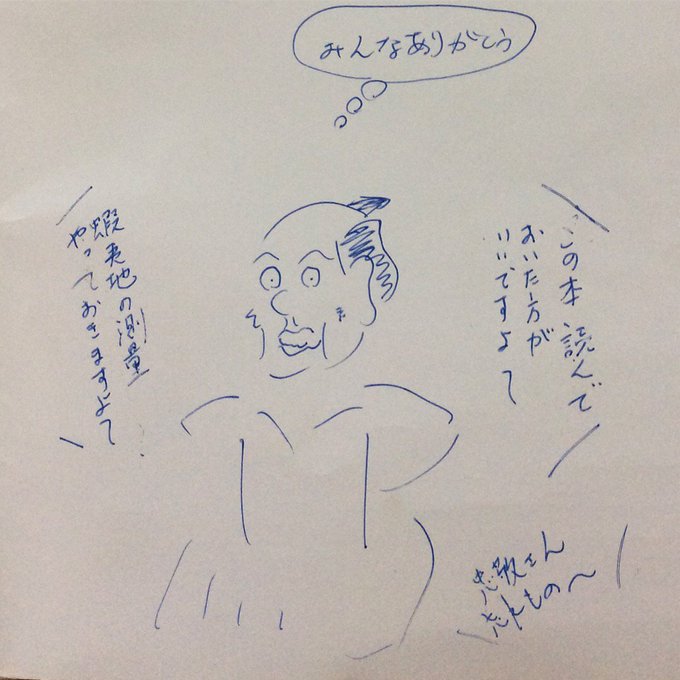 みんなありがとう
この本 読んで
おいた方が
いいですよ〜
蝦夷地の測量
やっておきますよ〜
忠敬さん
忘れもの〜